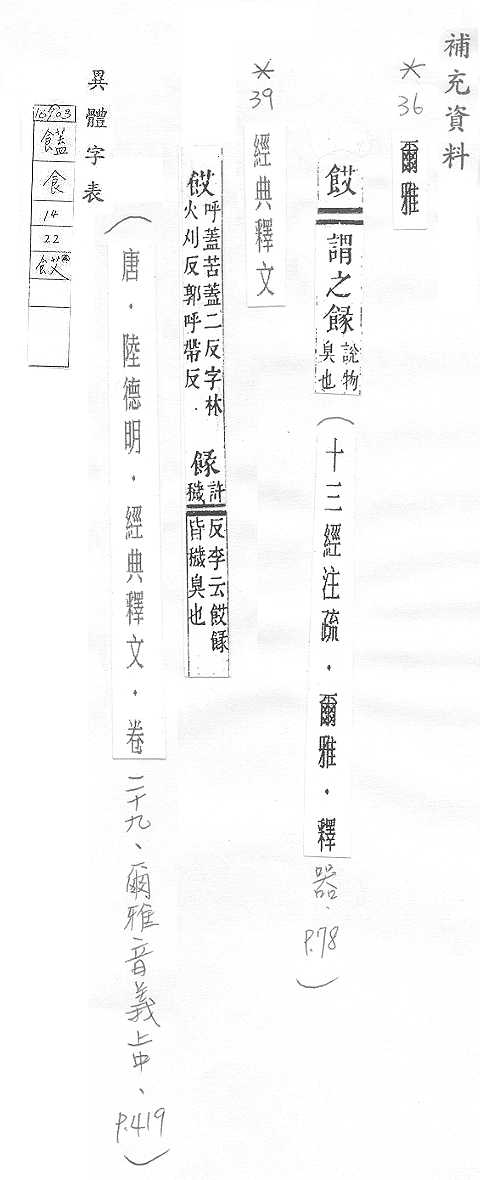 補充資料
*36 爾雅
餀謂之餯說物臭也(十三經注疏．爾雅．釋器．P.78)
*39 經典釋文
餀呼蓋苦蓋二反字林火刈反郭呼帶反．餯許穢反李云餀餯皆穢臭也
(唐．陸德明．經典釋文．卷二十九、爾雅音義上中、P.419)
異體字表
16903
饚
食
14
22
餀